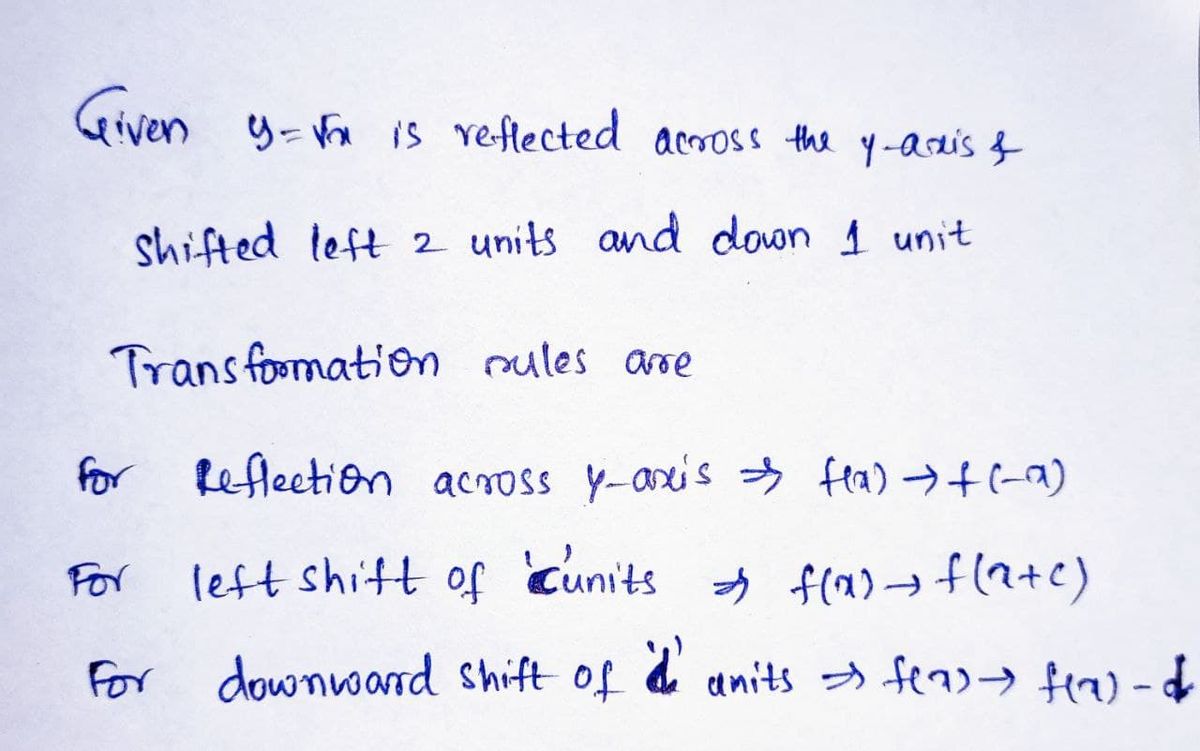 Given y=√x is reflected across the y-axis &
shifted left 2 units and down 1 unit
Transformation rules are
for Reflection across y-axis ⇒ f(x) → f(-x)
For left shift of 'c' units ⇒ f(x) → f(x+c)
For downward shift of 'd' units ⇒ f(x) → f(x) - d